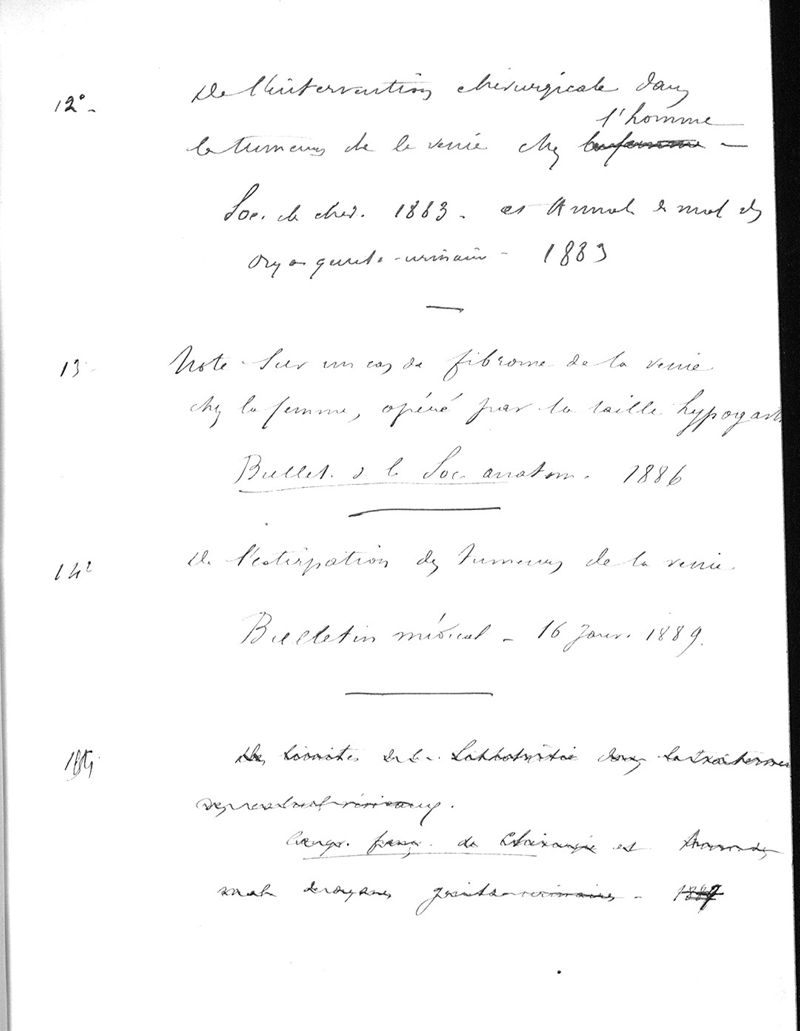 12°-
De l'intervention chirurgicale dans
l'homme
les tumeurs de la vessie chez la femme -
Soc. de chir. 1883 - et Annal. des mal. des
org. genito-urinair - 1883
13
Note sur un cas de fibrome de la vessie
chez la femme, opéré par la taille hypogast
Bullet. de la Soc. anatom. 1886
14°
De l'extirpation des tumeurs de la vessie.
Bulletin médical - 16 Janv. 1889.
Des limites de la dans le traitement
Congr. franç. de Chirurgie et Annal. des
mal. des organes genito-urinaires - 1889